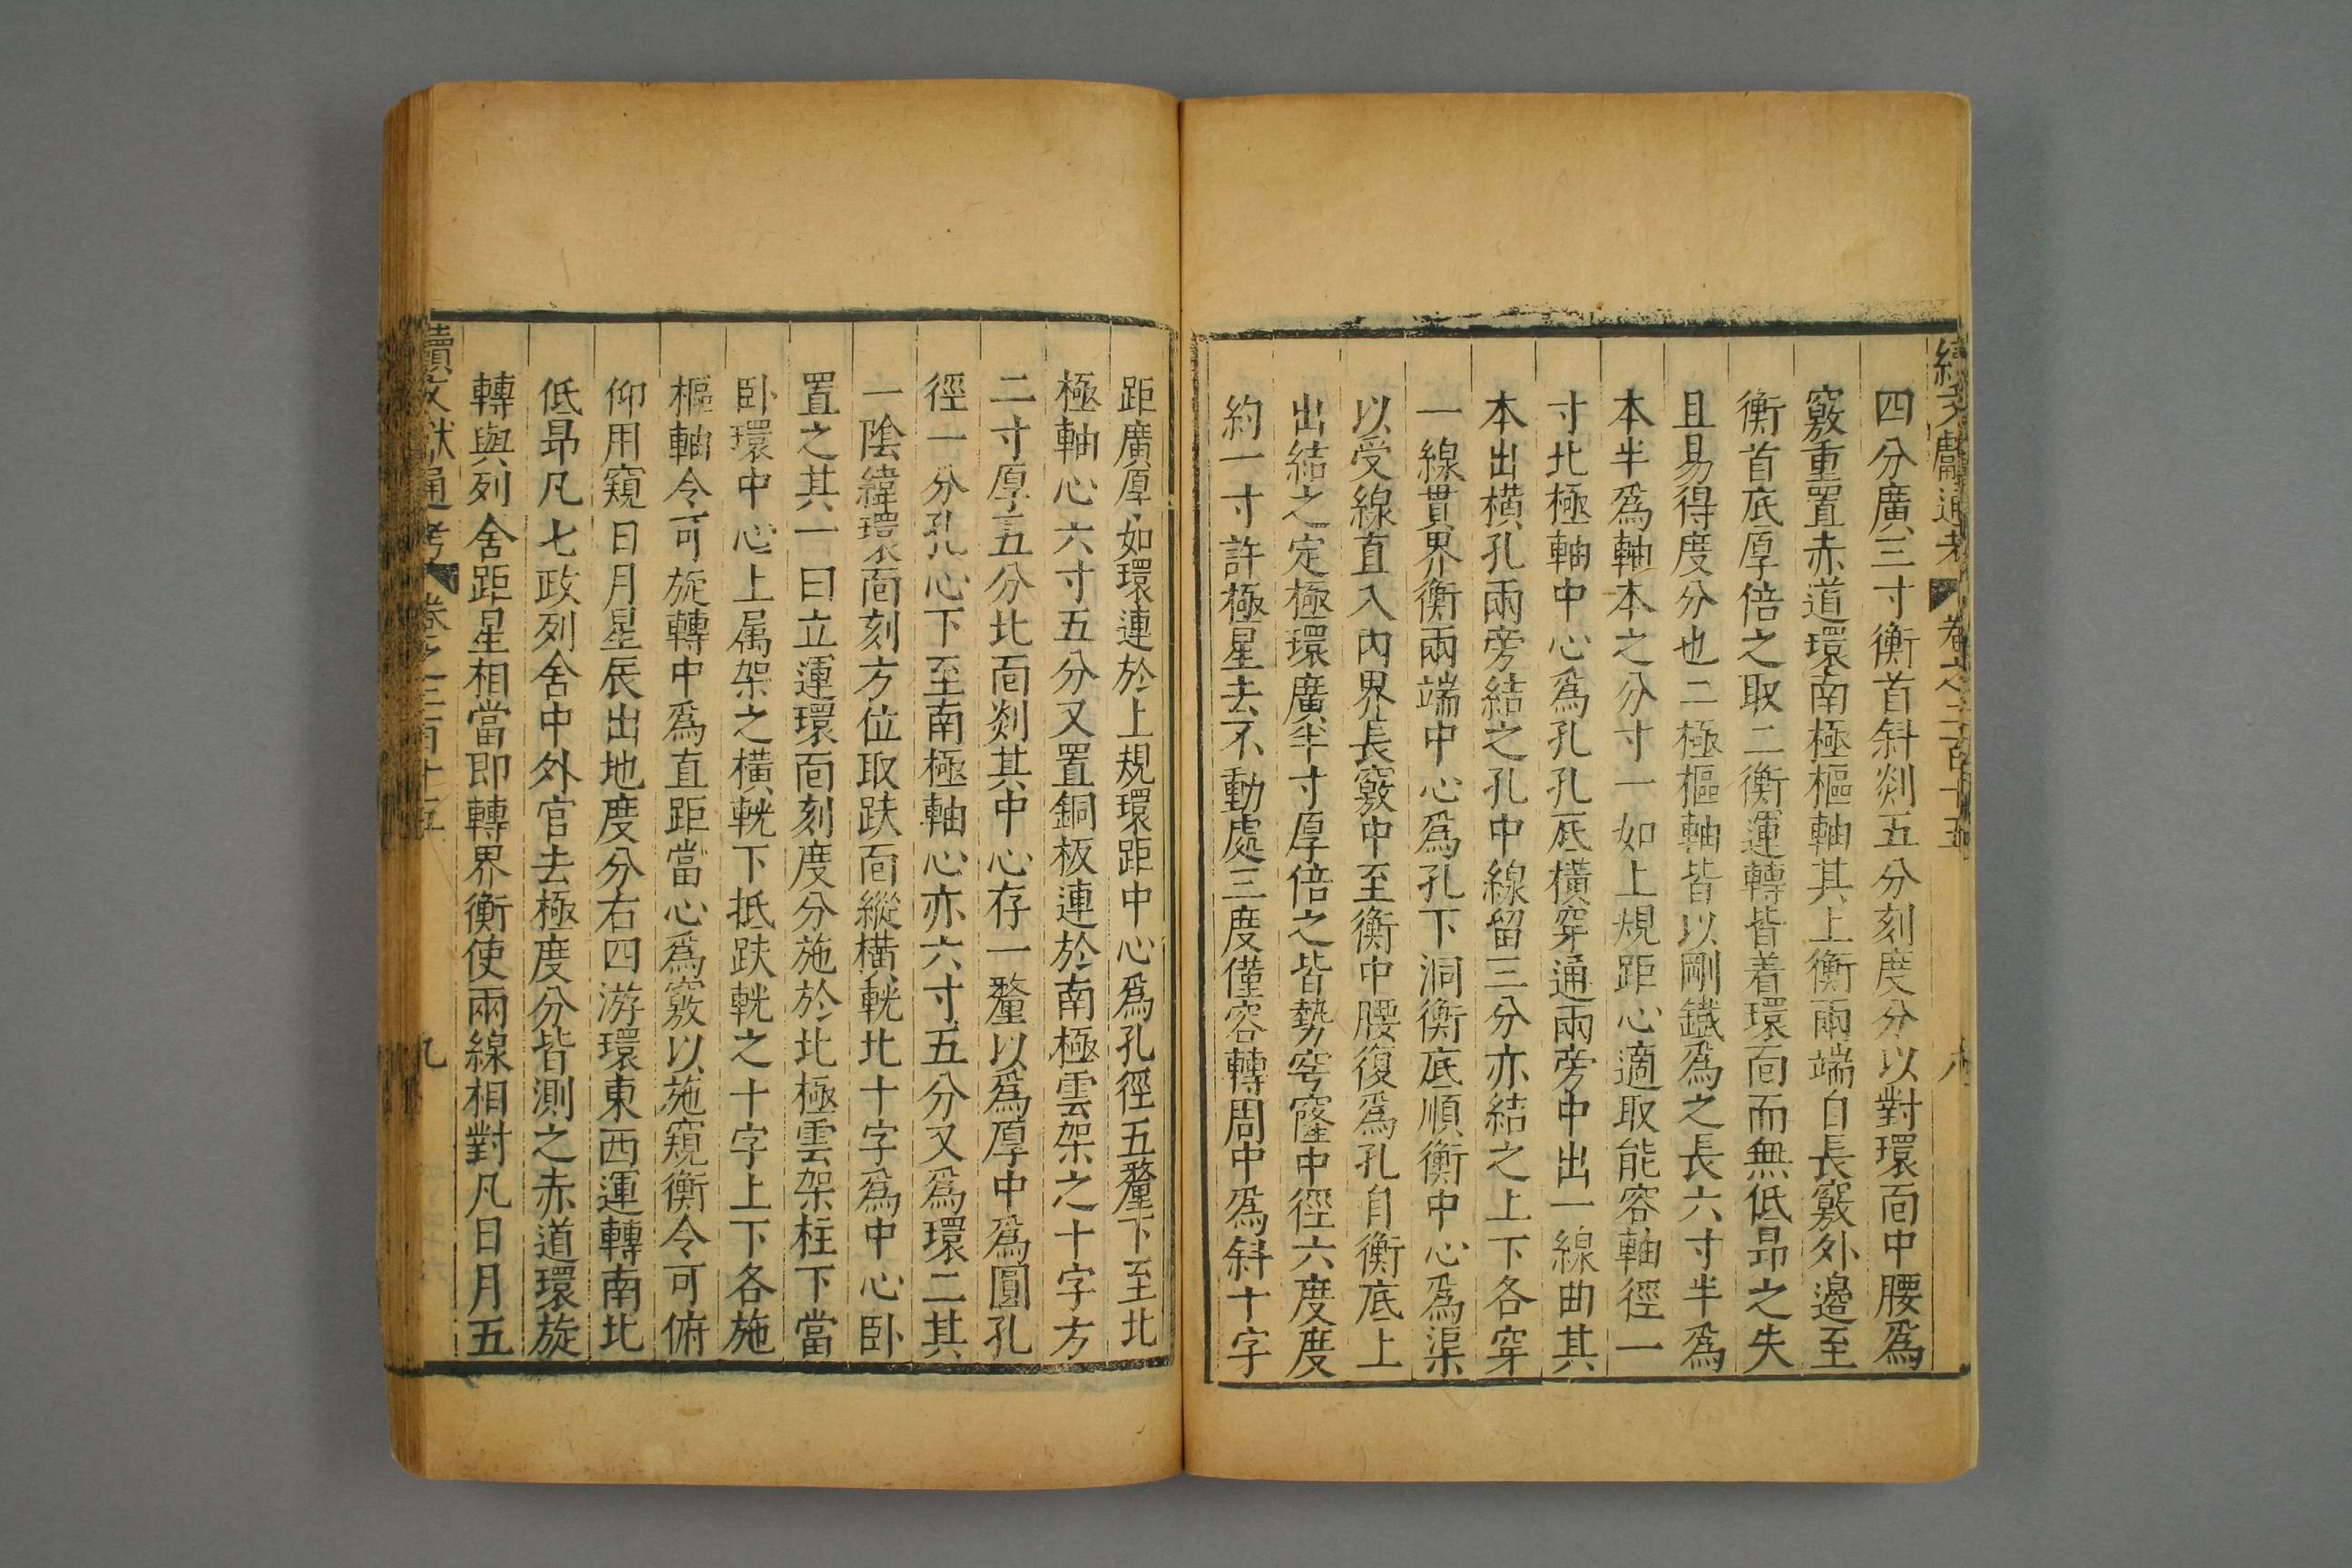 續文獻通考 卷之二百十五 八
四分廣三寸衡首斜剡五分刻度分以對環面中腰爲
竅重置赤道環南極樞軸其上衡兩端自長竅外邉至
衡首底厚倍之取二衡運轉皆着環面而無低昂之失
且易得度分也二極樞軸皆以剛鐵爲之長六寸半爲
本半爲軸本之分寸一如上規距心適取能容軸徑一
寸北極軸中心爲孔孔底橫穿通兩旁中出一線曲其
本出橫孔兩旁結之孔中線留三分亦結之上下各穿
一線貫界衡兩端中心爲孔下洞衡底順衡中心爲渠
以受線直入內界長竅中至衡中腰復爲孔自衡底上
出結之定極環廣半寸厚倍之皆勢穹窿中徑六度度
約一寸許極星去不動處三度僅容轉周中爲斜十字
距廣厚如環連於上規環距中心爲孔徑五釐下至北
極軸心六寸五分又置銅板連於南極雲架之十字方
二寸厚五分北面剡其中心存一釐以爲厚中爲圓孔
徑一分孔心下至南極軸心亦六寸五分又爲環二其
一陰緯環面刻方位取趺面縱橫軦北十字爲中心卧
置之其一曰立運環面刻度分施於北極雲架柱下當
卧環中心上属架之橫軦下抵趺軦之十字上下各施
樞軸令可旋轉中爲直距當心爲竅以施窺衡令可俯
仰用窺日月星辰出地度分右四游環東西運轉南北
低昻凡七政列舍中外官去極度分皆測之赤道環旋
轉與列舍距星相當即轉界衡使兩線相對凡日月五
續文獻通考 卷之二百十五 九